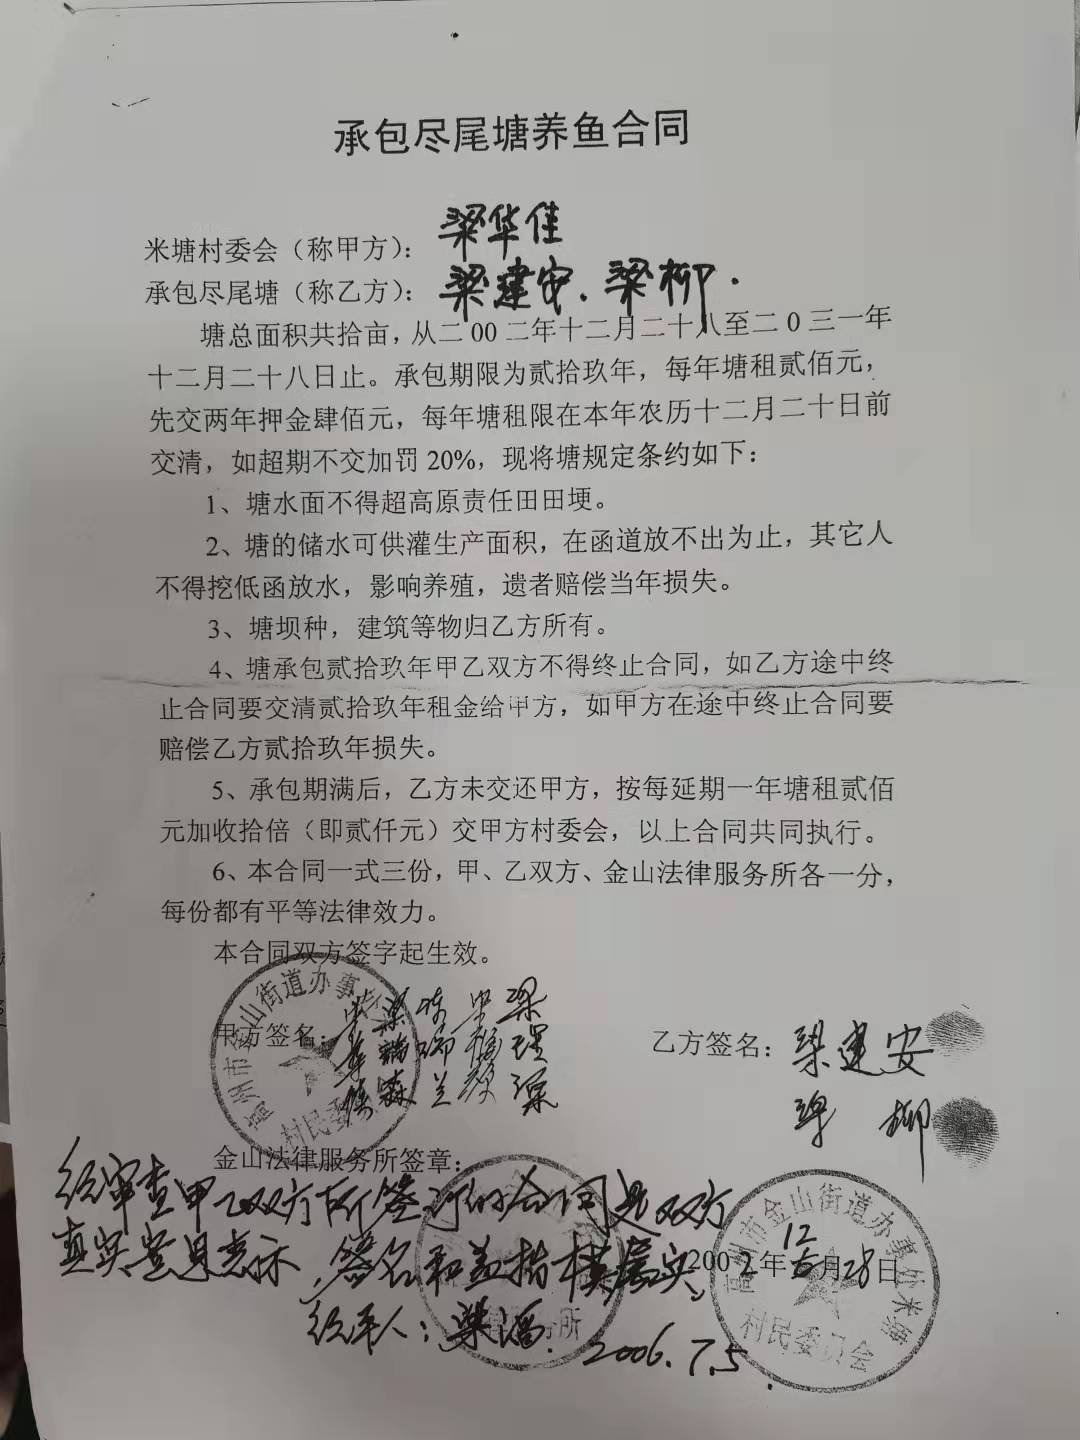 承包尽尾塘养鱼合同
米塘村委会（称甲方）：梁华佳
承包尽尾塘（称乙方）：梁建安．梁柳．
塘总面积共拾亩，从二00二年十二月二十八至二0三一年
十二月二十八日止。承包期限为贰拾玖年，每年塘租贰佰元，
先交两年押金肆佰元，每年塘租限在本年农历十二月二十日前
交清，如超期不交加罚20%，现将塘规定条约如下：
1、塘水面不得超高原责任田田埂。
2、塘的储水可供灌生产面积，在函道放不出为止，其它人
不得挖低函放水，影响养殖，遗者赔偿当年损失。
3、塘坝种，建筑等物归乙方所有。
4、塘承包贰拾玖年甲乙双方不得终止合同，如乙方途中终
止合同要交清贰拾玖年租金给甲方，如甲方在途中终止合同要
赔偿乙方贰拾玖年损失。
5、承包期满后，乙方未交还甲方，按每延期一年塘租贰佰
元加收拾倍（即贰仟元）交甲方村委会，以上合同共同执行。
6、本合同一式三份，甲、乙双方、金山法律服务所各一分，
每份都有平等法律效力。
本合同双方签字起生效。
高州市金山街道办事处
村民委员会
甲方签名：
乙方签名：梁建安
梁柳
金山法律服务所签章：
经审查甲乙双方所签订的合同是双方
真实意思表示，签名和盖指模属实。
2002年12月28日
高州市金山街道办事处米塘
村民委员会
经手人：梁
2006.7.5.